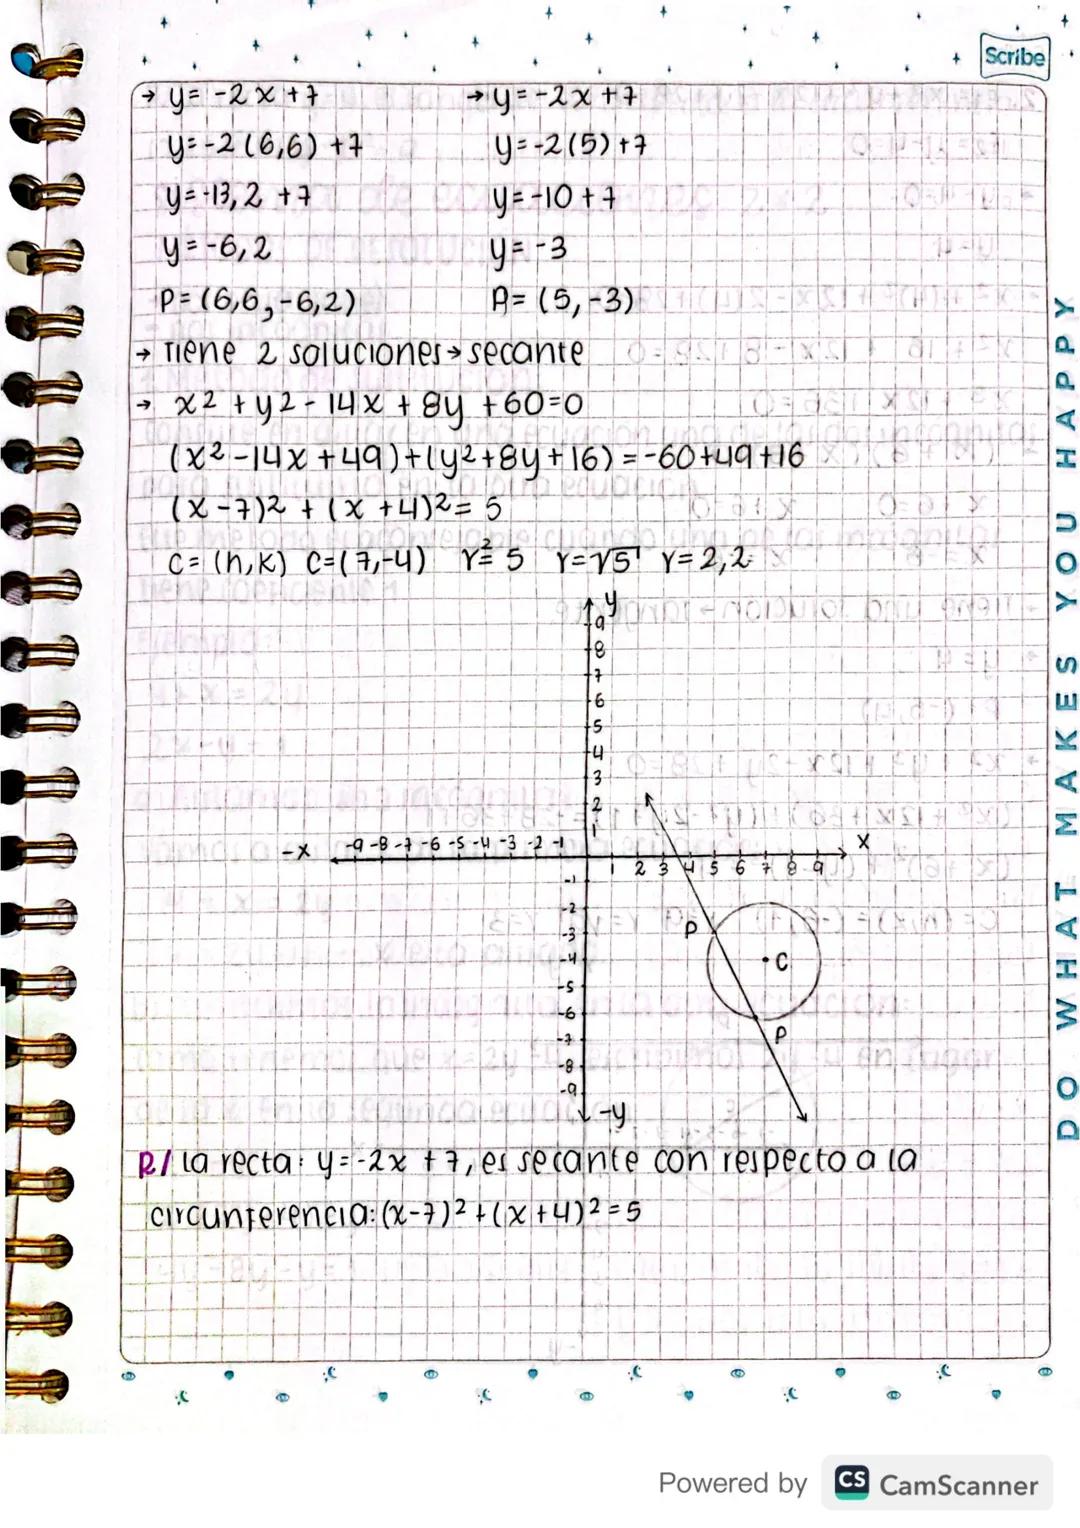 Scribe
→ y= -2x+7
y=-2(6,6)+7
y=-13,2 +7
y=-6,2
P=(6,6,-6,2)
→ y=-2x+7
y=-2(5)+7
y=-10+7
y=-3
P=(5,-3)
→ Tiene 2 soluciones→secante
→ x2 +y2-14x+8y+60=0
(x2-14x+49)+(y2+8y+16)=-60+49+16
(x-7)2+(x+4)2=5
C=(h,k) C=(7,-4) r²=5 r=√5 r=2,2
y
9
8
7
6
5
4
3
2
1
-x -9 -8 -7 -6 -5 -4 -3 -2 -1
1 2 3 4 5 6 7 8 9 x
-1
-2
-3
-4
-5
-6
-7
-8
-9
-y
P
C
P
R/ La recta: y=-2x+7, es secante con respecto a la
circunferencia:(x-7)2+(x+4)2=5
DO WHAT MAKES YOU HAPPY
Powered by CS CamScanner